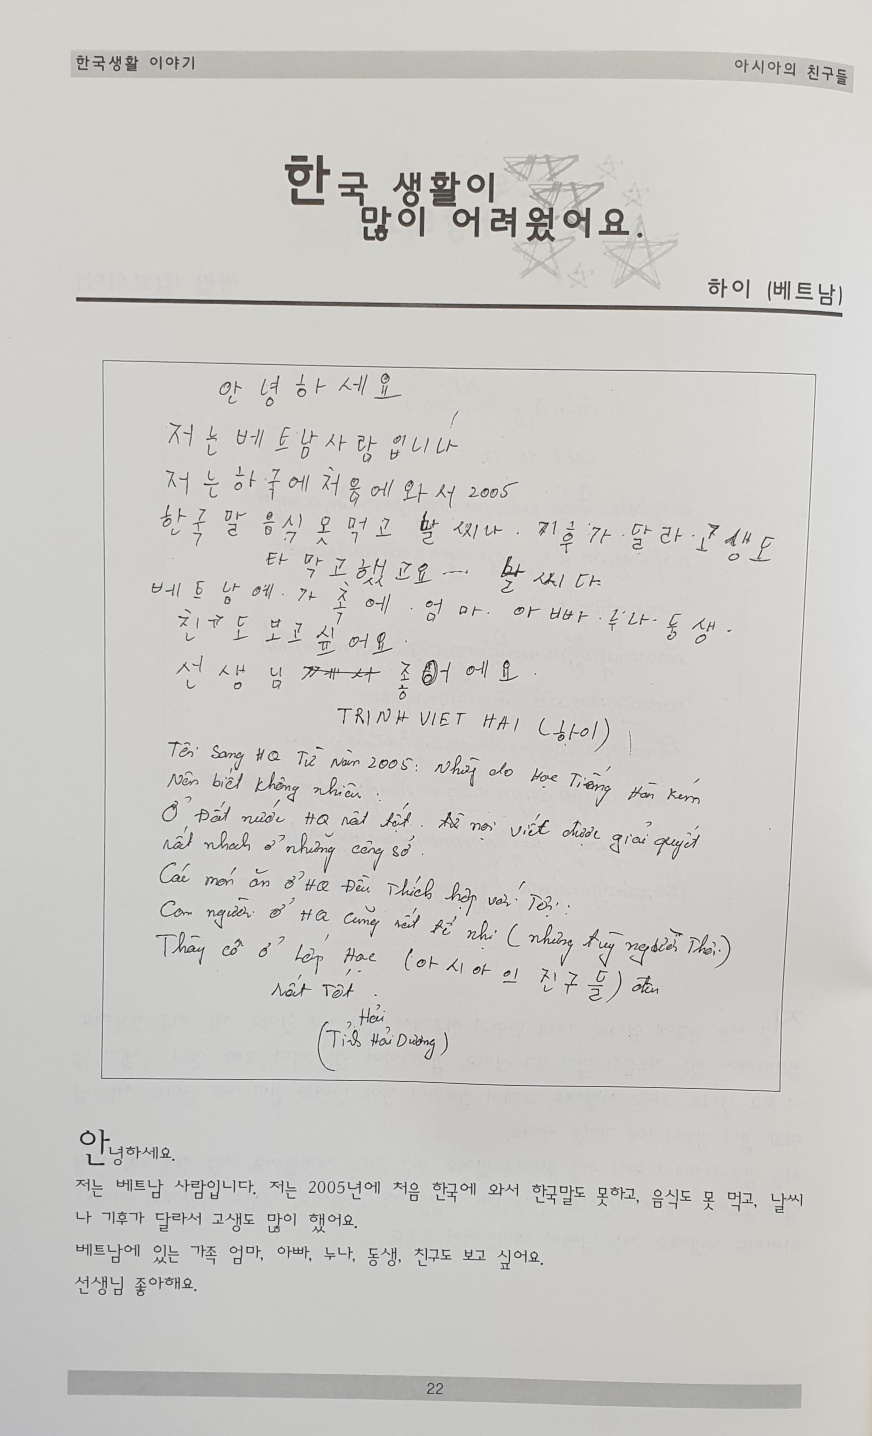 한국생활 이야기
아시아의 친구들
한국 생활이
많이 어려웠어요.
하이 (베트남)
안녕하세요
저는 베트남사람입니다
저는 하국에처음에와서 2005
한국 말 음식 못 먹고 날씨나. 기후가.달라.고생도
타막고했고요 .... 날씨다.
베트남에.가족에.엄마.아빠.루나.동생.
친구도 보고싶어요.
선생님 좋어에요.
TRINH VIET HAI (하이)
Tôi sang HQ Từ Năm 2005: Nhưng do Học Tiếng Hàn kém
Nên biết không nhiều:
Ở Đất nước HQ rất tốt. mọi viết được giải quyết
rất nhanh ở những công sở.
Các món ăn ở HQ Đều Thích hợp với Tôi:
Con người ở HQ cũng rất tế nhị (nhưng tuỳ người Thôi)
Thầy cô ở Lớp Học (아시아의 친구들) đều
rất Tốt.
Hải
(Tỉnh Hải Dương)
안녕하세요.
저는 베트남 사람입니다. 저는 2005년에 처음 한국에 와서 한국말도 못하고, 음식도 못 먹고, 날씨
나 기후가 달라서 고생도 많이 했어요.
베트남에 있는 가족 엄마, 아빠, 누나, 동생, 친구도 보고 싶어요.
선생님 좋아해요.
22